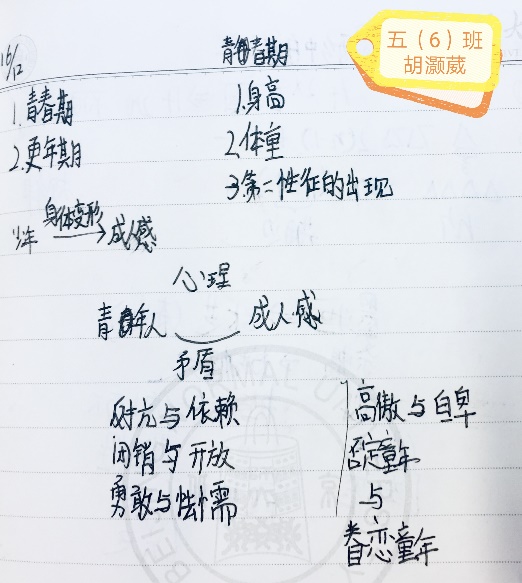 五（6）班
胡灏葳
16/12
青春期
1.青春期
2.更年期
1.身高
2.体重
3第二性征的出现
少年 身体变形 成人感
心理
青年人 成人感
矛盾
反抗与依赖
闭销与开放
勇敢与怯懦
高傲与自卑
否定童年
与
眷恋童年